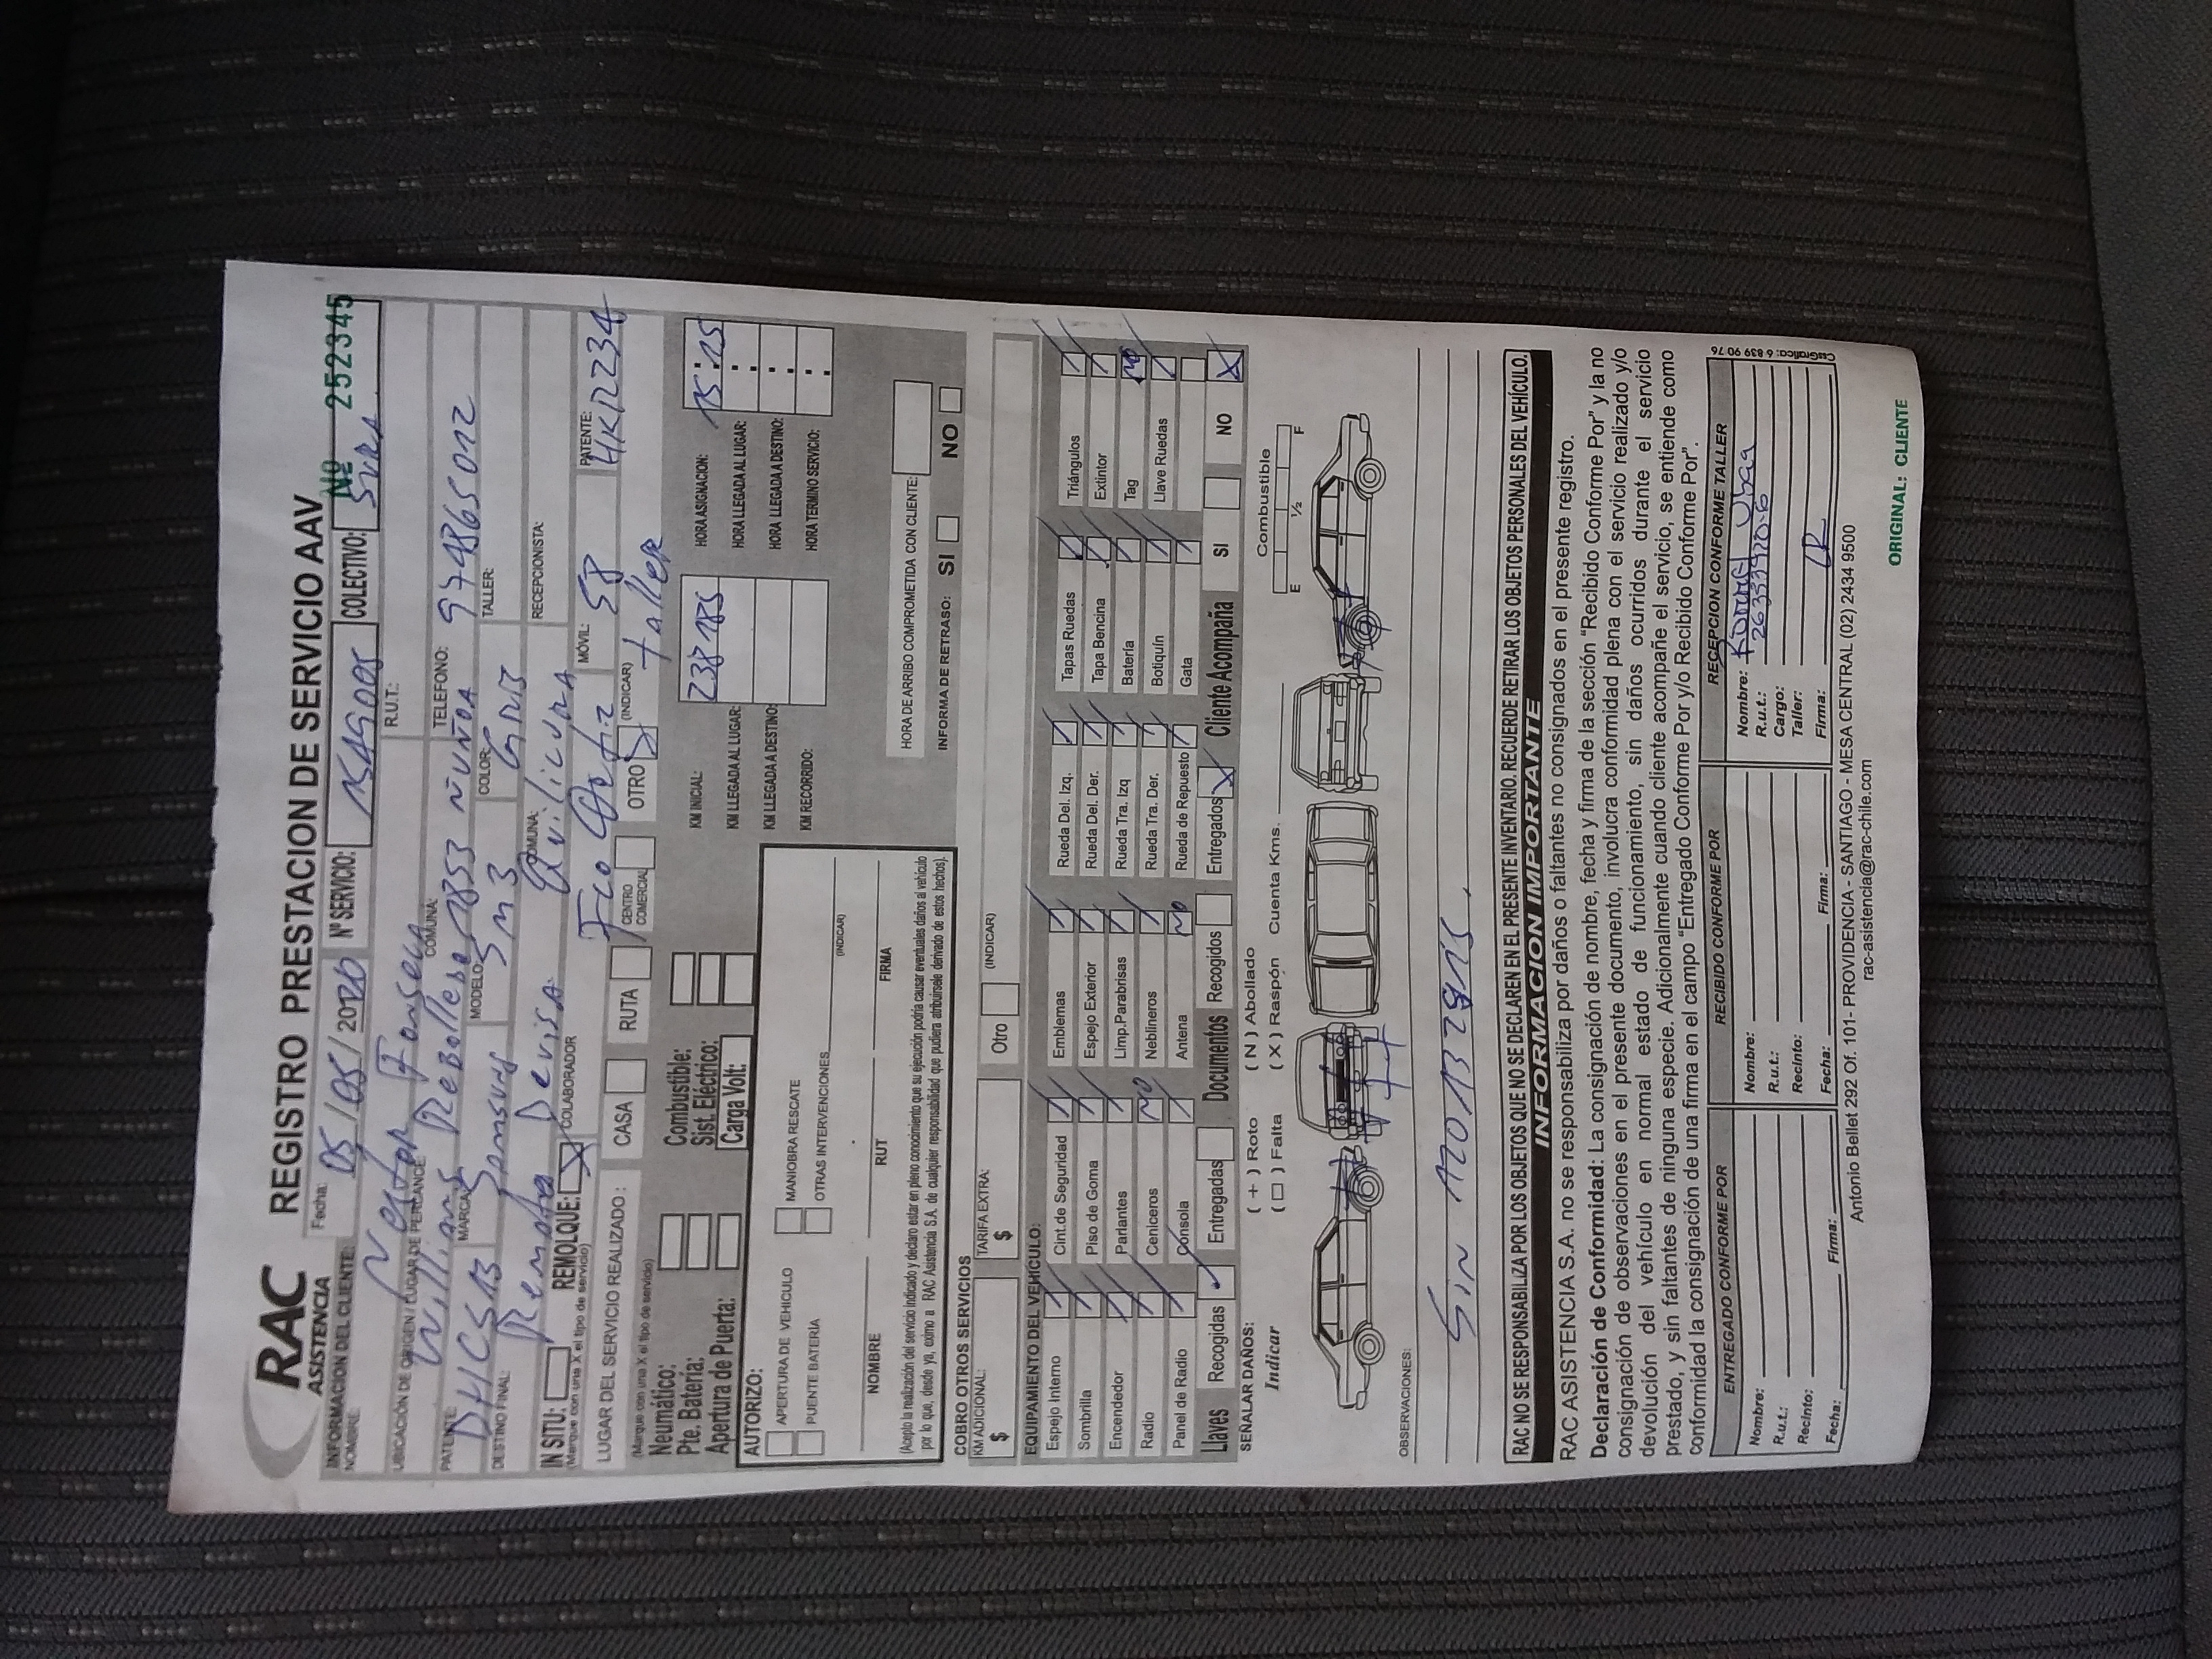 RAC
ASISTENCIA
REGISTRO PRESTACION DE SERVICIO AAV
Nº 252345
INFORMACION DEL CLIENTE: Fecha: 05/05/2020 Nº SERVICIO: COLECTIVO: Sura
NOMBRE: Nestor Fonseca R.U.T.:
UBICACIÓN DE ORIGEN / LUGAR DE PERCANCE: Williams Rebolledo 1853 COMUNA: Ñuñoa TELEFONO: 974865012
PATENTE: DHCS13 MARCA: Samsung MODELO: SM3 COLOR: GRIS TALLER:
DESTINO FINAL: COMUNA: Quilicura RECEPCIONISTA:
IN SITU: REMOLQUE: COLABORADOR MÓVIL: 58 PATENTE:
(Marque con una X el tipo de servicio)
LUGAR DEL SERVICIO REALIZADO: CASA RUTA CENTRO COMERCIAL OTRO (INDICAR) taller
(Marque con una X el tipo de servicio)
Neumático: Combustible: KM INICIAL: 238185 HORA ASIGNACION: 15:15
Pte. Batería: Sist. Eléctrico: KM LLEGADA AL LUGAR: HORA LLEGADA AL LUGAR:
Apertura de Puerta: Carga Volt: KM LLEGADA A DESTINO: HORA LLEGADA A DESTINO:
KM RECORRIDO: HORA TERMINO SERVICIO:
AUTORIZO:
APERTURA DE VEHICULO MANIOBRA RESCATE
PUENTE BATERÍA OTRAS INTERVENCIONES (INDICAR)
NOMBRE RUT FIRMA
(Acepto la realización del servicio indicado y declaro estar en pleno conocimiento que su ejecución podría causar eventuales daños al vehículo
por lo que, desde ya, eximo a RAC Asistencia S.A. de cualquier responsabilidad que pudiera atribuírsele derivado de estos hechos).
HORA DE ARRIBO COMPROMETIDA CON CLIENTE:
INFORMA DE RETRASO: SI NO
COBRO OTROS SERVICIOS
KM ADICIONAL: $ TARIFA EXTRA: $ Otro (INDICAR)
EQUIPAMIENTO DEL VEHÍCULO:
Espejo Interno Cint.de Seguridad Emblemas Rueda Del. Izq. Tapas Ruedas Triángulos
Sombrilla Piso de Goma Espejo Exterior Rueda Del. Der. Tapa Bencina Extintor
Encendedor Parlantes Limp.Parabrisas Rueda Tra. Izq Batería Tag NO
Radio Ceniceros NO Neblineros Rueda Tra. Der. Botiquín Llave Ruedas
Panel de Radio Consola Antena NO Rueda de Repuesto Gata
Llaves Recogidas Entregadas Documentos Recogidos Entregados Cliente Acompaña SI NO
SEÑALAR DAÑOS: ( + ) Roto ( N ) Abollado Combustible
Indicar ( □ ) Falta ( X ) Raspón Cuenta Kms. E ½ F
OBSERVACIONES:
Sin
RAC NO SE RESPONSABILIZA POR LOS OBJETOS QUE NO SE DECLAREN EN EL PRESENTE INVENTARIO. RECUERDE RETIRAR LOS OBJETOS PERSONALES DEL VEHÍCULO.
INFORMACION IMPORTANTE
RAC ASISTENCIA S.A. no se responsabiliza por daños o faltantes no consignados en el presente registro.
Declaración de Conformidad: La consignación de nombre, fecha y firma de la sección "Recibido Conforme Por" y la no
consignación de observaciones en el presente documento, involucra conformidad plena con el servicio realizado y/o
devolución del vehículo en normal estado de funcionamiento, sin daños ocurridos durante el servicio
prestado, y sin faltantes de ninguna especie. Adicionalmente cuando cliente acompañe el servicio, se entiende como
conformidad la consignación de una firma en el campo "Entregado Conforme Por y/o Recibido Conforme Por".
ENTREGADO CONFORME POR RECIBIDO CONFORME POR RECEPCION CONFORME TALLER
Nombre: Nombre: Nombre:
R.u.t.: R.u.t.: R.u.t.:
Recinto: Recinto: Cargo:
Taller:
Fecha: Firma: Fecha: Firma: Firma:
CssGrafica: 6 839 90 76
Antonio Bellet 292 Of. 101- PROVIDENCIA - SANTIAGO - MESA CENTRAL (02) 2434 9500
rac-asistencia@rac-chile.com
ORIGINAL: CLIENTE